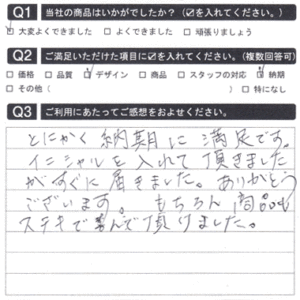 Q1 当社の商品はいかがでしたか?(☑を入れてください。)
☑大変よくできました □よくできました □頑張りましょう
Q2 ご満足いただけた項目に☑を入れてください。(複数回答可)
□価格 □品質 ☑デザイン □商品 □スタッフの対応 ☑納期
□その他( )□特になし
Q3 ご利用にあたってご感想をおよせください。
とにかく納期に満足です。
イニシャルを入れて頂きました
がすぐに届きました。ありがとう
ございます。もちろん商品も
ステキで喜んで頂けました。